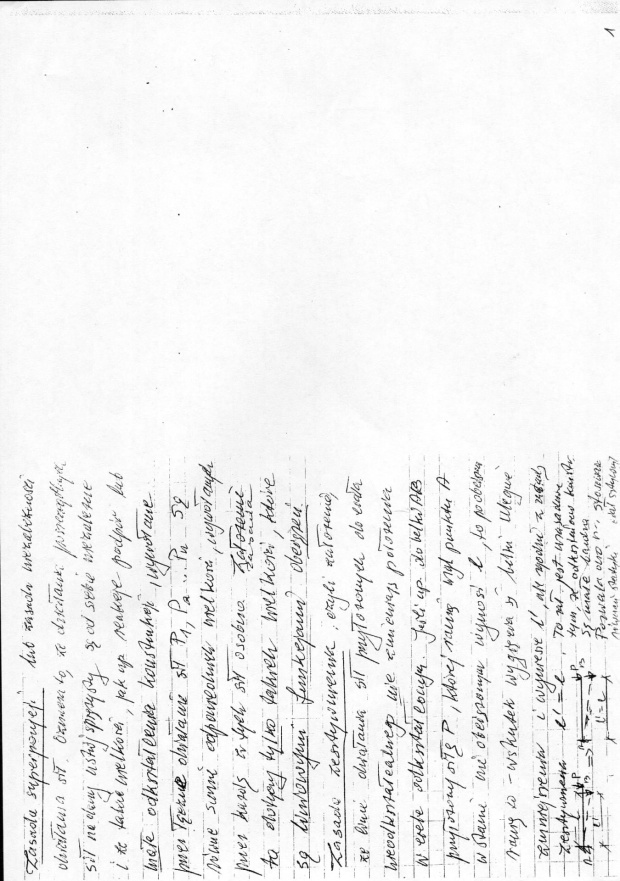 1
Zasada superpozycji lub zasada niezależności
działania sił. Oznacza to, że działania poszczególnych
sił na dany ustrój sprężysty są od siebie niezależne
i że takie wielkości, jak np reakcje podpór lub
małe odkształcenia konstrukcji, wywołane
przez łączne działanie sił P1, P2 ... Pn są
równe sumie odpowiednich wielkości, wywołanych
przez każdą z tych sił osobno. Założenie
to dotyczy tylko takich wielkości, które
są liniowymi funkcjami obciążeń
Zasada zesztywnienia, czyli założenie,
że linie działania sił przyłożonych do ciała
nieodkształcalnego nie zmieniają położenia
w czasie odkształcenia. Jeśli np do belki AB
przyłożono siłę P, której ramię wgl punktu A
w stanie nie obciążonym wynosi l, to podobne
ramię to - wskutek wygięcia się belki ulegnie
zmniejszeniu i wyniesie l', ale zgodnie z zasadą
zesztywnienia l' = l.
To zał. jest uzasadnione
tym, że odkształcenia konstr.
są małe
Pozwala ono n..
P
P
l' = l